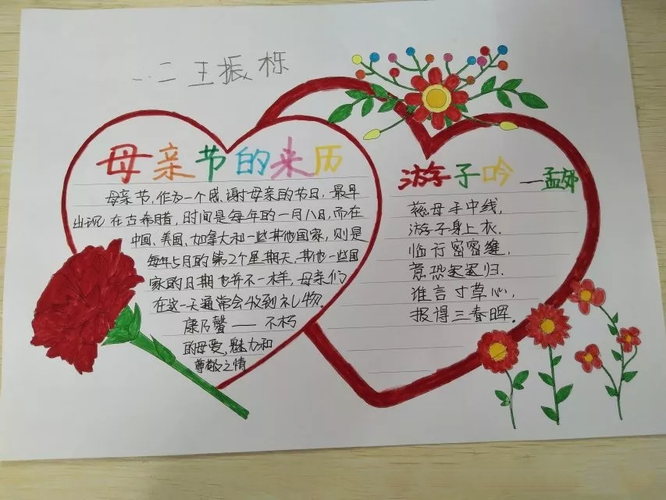 一.二 王振栎
母亲节的来历
母亲节,作为一个感谢母亲的节日,最早
出现在古希腊,时间是每年的一月八日,而在
中国、美国、加拿大和一些其他国家,则是
每年5月的第2个星期天,其他一些国
家的日期也并不一样,母亲们
在这一天通常会收到礼物.
康乃馨——不朽
的母爱,魅力和
尊敬之情
游子吟 —孟郊
慈母手中线,
游子身上衣,
临行密密缝,
意恐迟迟归.
谁言寸草心,
报得三春晖.